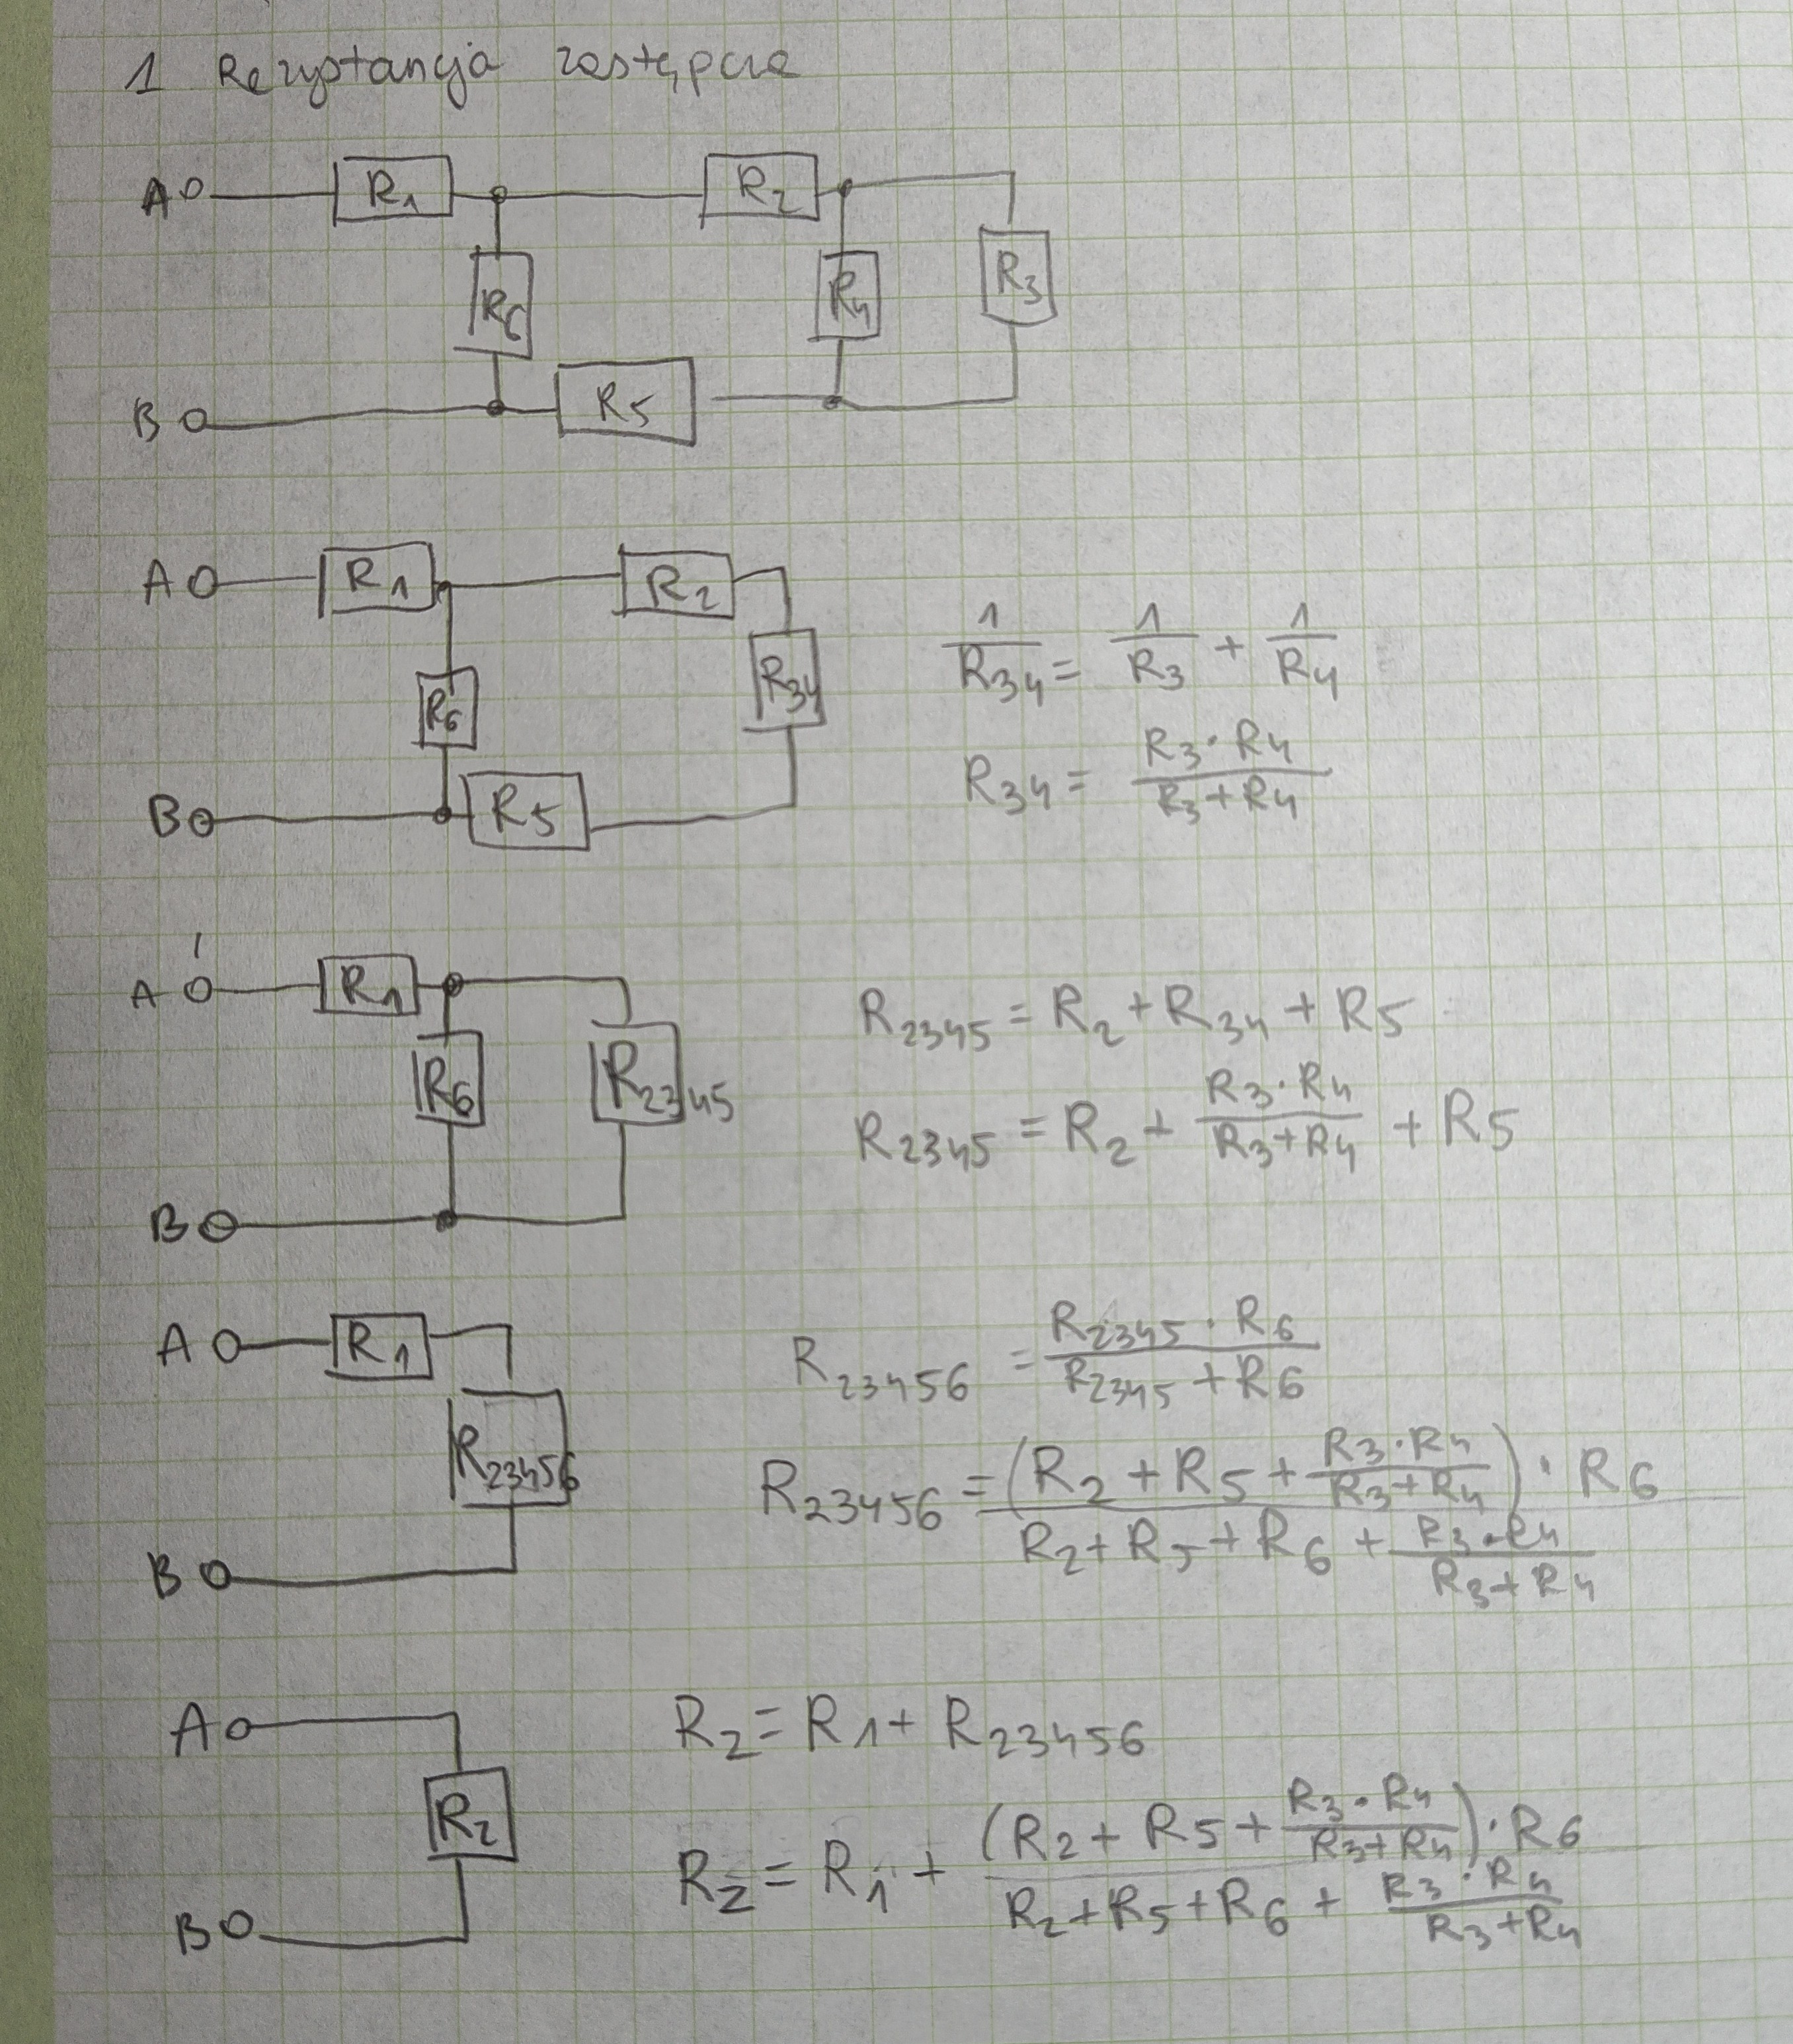 1 Rezystancja zastępcza
A R1 R2
R6 R4 R3
B R5
A R1 R2
R6 R34
B R5
1/R34 = 1/R3 + 1/R4
R34 = (R3·R4)/(R3+R4)
A R1
R6 R2345
B
R2345 = R2 + R34 + R5
R2345 = R2 + (R3·R4)/(R3+R4) + R5
A R1
R23456
B
R23456 = (R2345 · R6)/(R2345 + R6)
R23456 = ((R2 + R5 + (R3·R4)/(R3+R4)) · R6)/(R2 + R5 + R6 + (R3·R4)/(R3+R4))
A
Rz
B
Rz = R1 + R23456
Rz = R1 + ((R2 + R5 + (R3·R4)/(R3+R4)) · R6)/(R2 + R5 + R6 + (R3·R4)/(R3+R4))